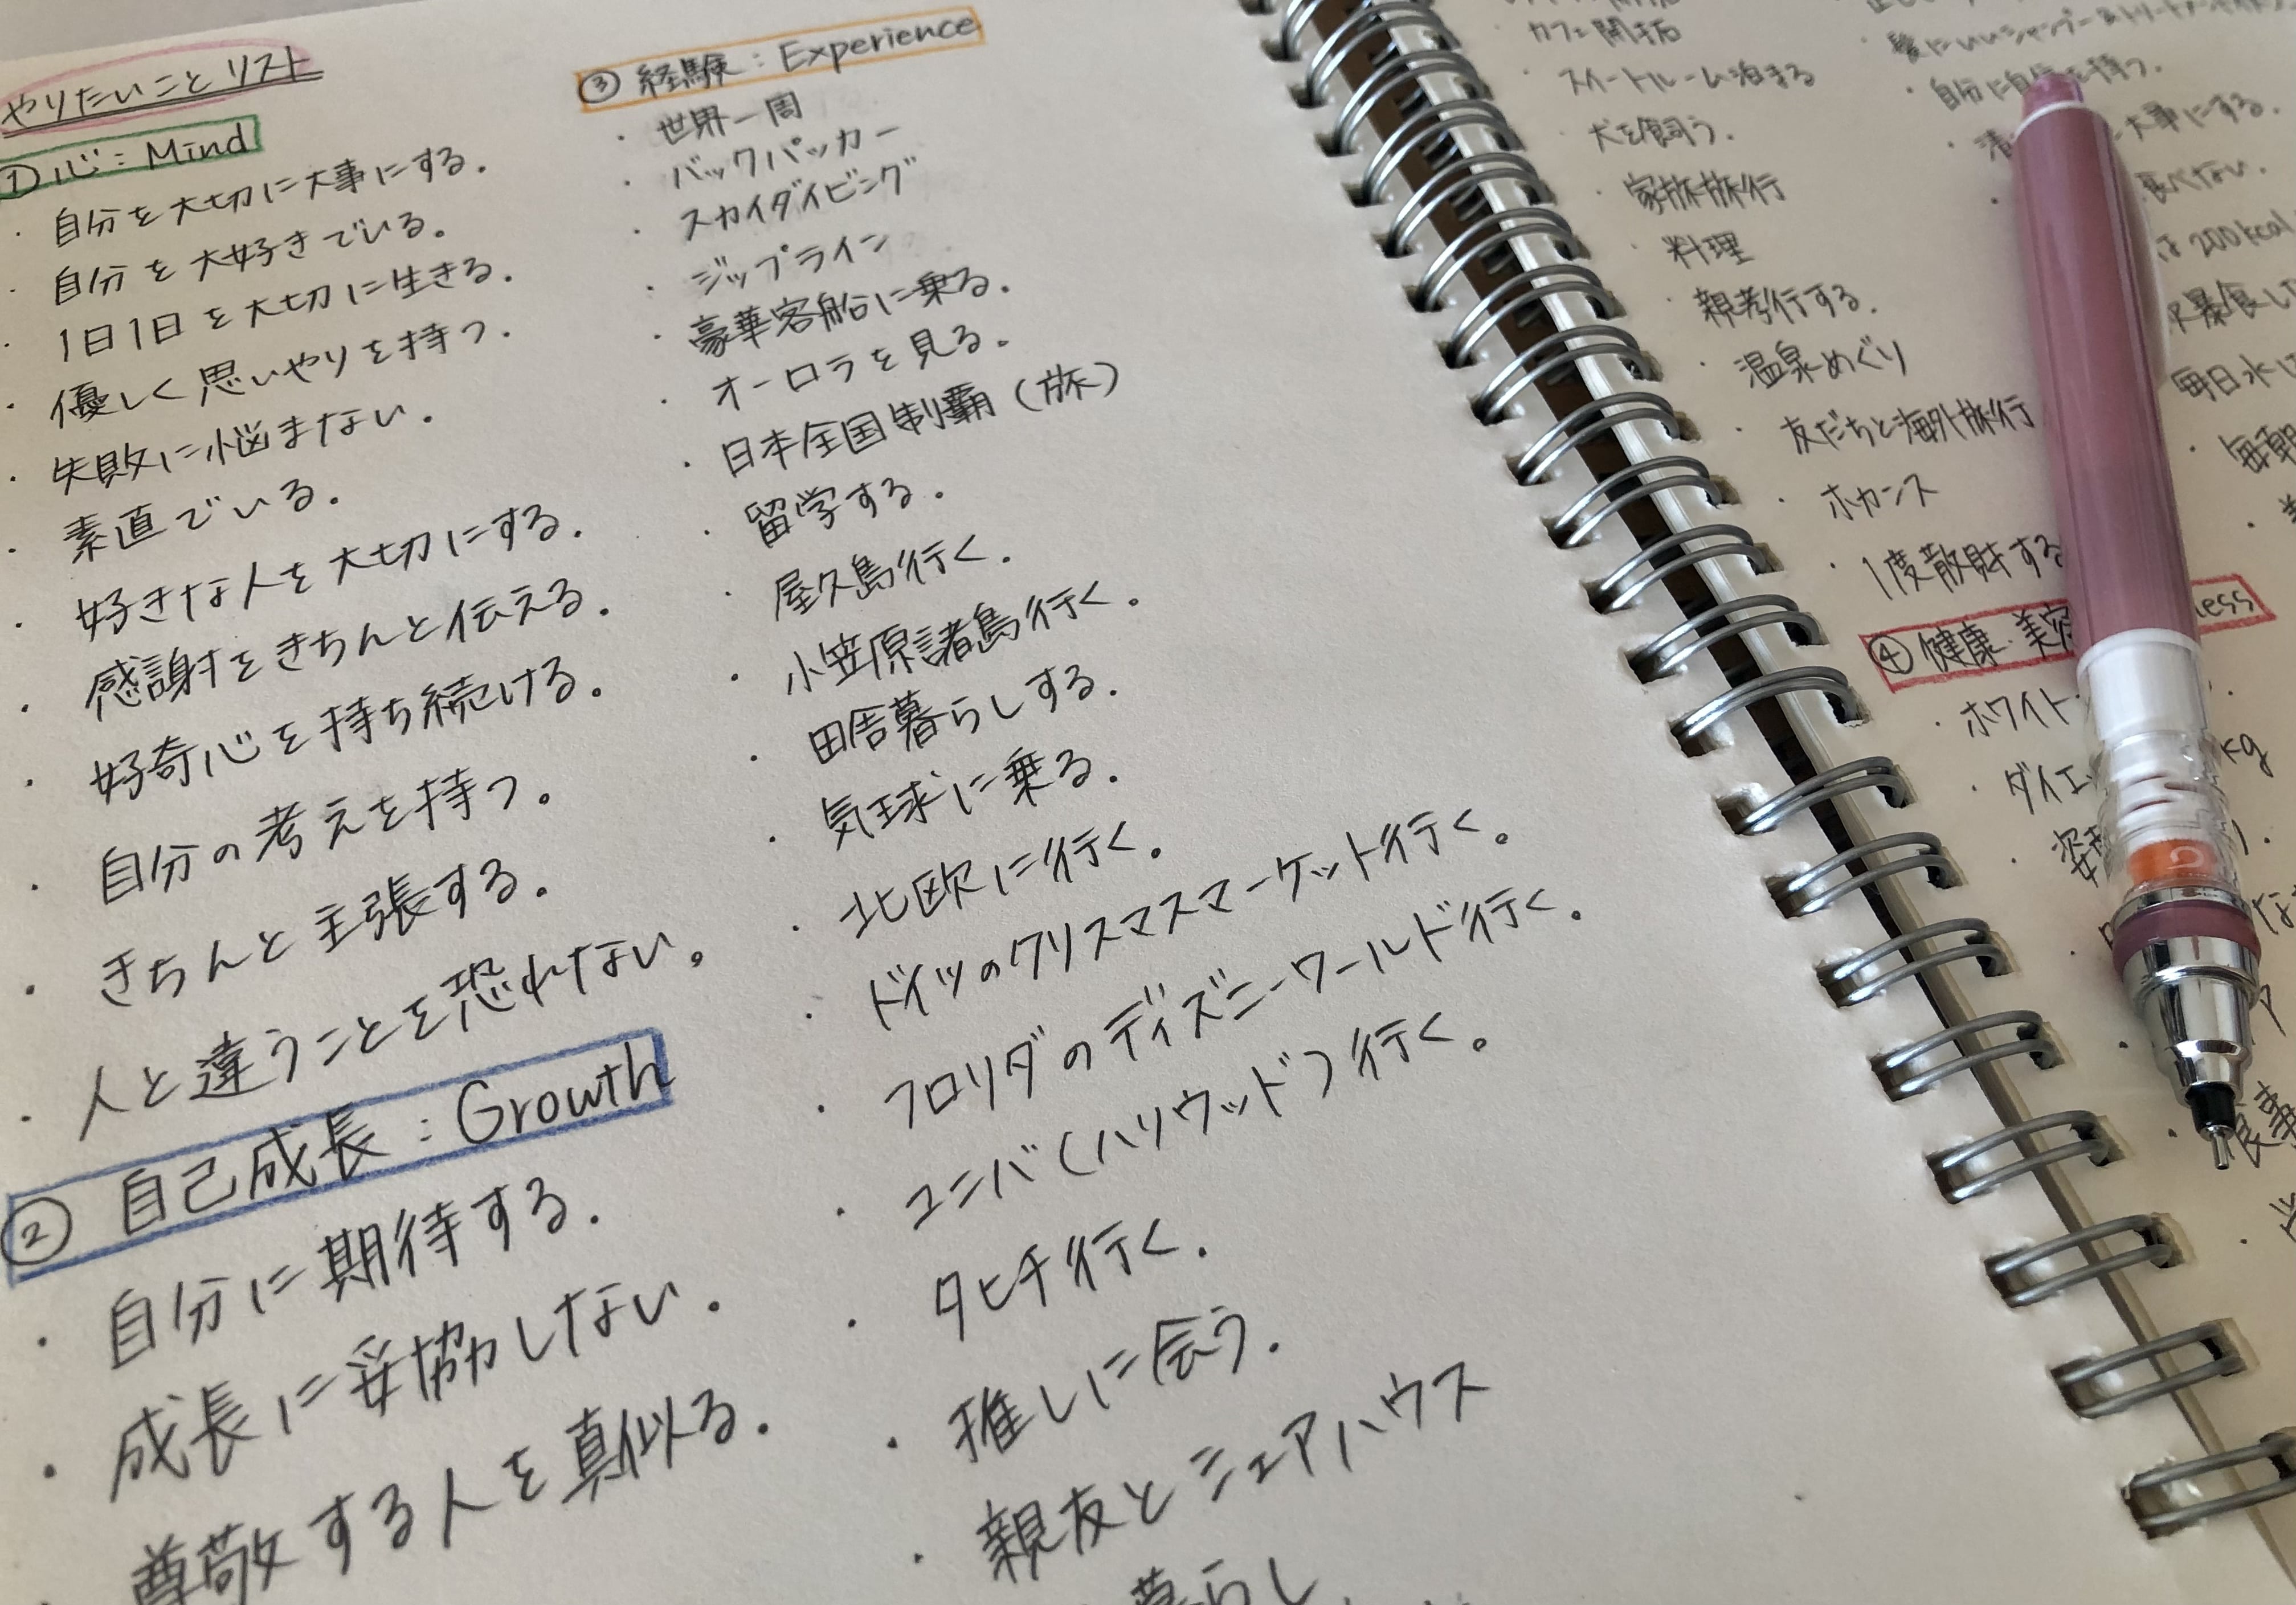 やりたいことリスト
① 心：Mind
・自分を大切に大事にする.
・自分を大好きでいる.
・1日1日を大切に生きる.
・優しく思いやりを持つ.
・失敗に悩まない.
・素直でいる.
・好きな人を大切にする.
・感謝をきちんと伝える.
・好奇心を持ち続ける.
・自分の考えを持つ。
・きちんと主張する.
・人と違うことを恐れない。
② 自己成長：Growth
・自分に期待する.
・成長に妥協しない.
・尊敬する人を真似る.
③ 経験：Experience
・世界一周
・バックパッカー
・スカイダイビング
・ジップライン
・豪華客船に乗る.
・オーロラを見る.
・日本全国制覇（旅）
・留学する.
・屋久島行く.
・小笠原諸島行く.
・田舎暮らしする.
・気球に乗る.
・北欧に行く.
・ドイツのクリスマスマーケット行く.
・フロリダのディズニーワールド行く.
・ユニバ（ハリウッド）行く.
・タヒチ行く.
・推しに会う.
・親友とシェアハウス
暮らし
カフェ開拓
・スイートルーム泊まる
・犬を飼う.
・家族旅行
・料理
・親孝行する.
・温泉めぐり
・友だちと海外旅行
・ホカンス
・1度散財する
④ 健康・美容
ess
・ホワイト
・ダイエ
kg
・自分に自信を持つ.
大事にする.
食べない.
200kcal
暴食し
毎日水
・毎朝
食事